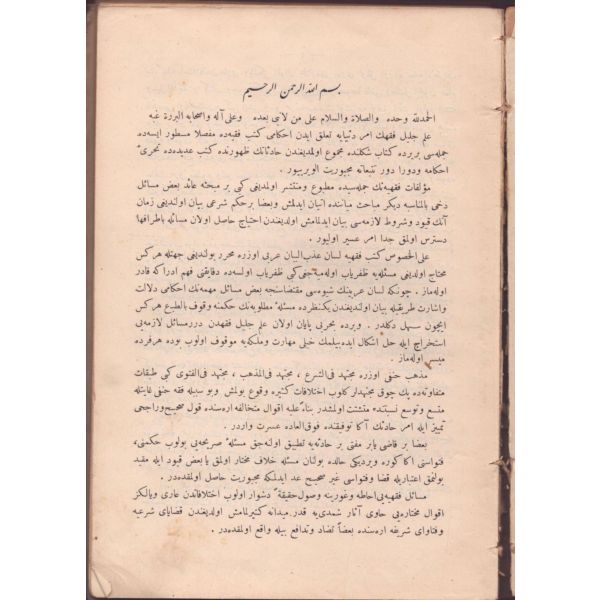 بسم الله الرحمن الرحيم
الحمدلله وحده والصلاة والسلام على من لانبى بعده وعلى آله واصحابه البررة غبه
علم جليل فقهك امر دنيايه تعلق ايدن احكامى كتب فقهيه‌ده مفصلا مسطور ايسه‌ده
جمله‌سى بريرده كتاب شكلنده مجموع اولمديغندن حادثاتك ظهورنده كتب عديده‌ده تحرى ٔ
احكامه ودورا دور تتبعاته مجبوريت الويرييور .
مؤلفات فقهيه‌نك جمله‌سيده مطبوع ومنتشر اولمديغى كبى بر مبحثه عائد بعض مسائل
دخى بالمناسبه ديكر مباحث مياننده اتيان ايدلمش وبعضا برحكم شرعى بيان اولنديغى زمان
آنك قيود وشروط لازمه‌سى بيان ايدلمامش اولديغندن احتياج حاصل اولان مسائله باطرافها
دسترس اولمق جدا امر عسير اوليور .
على الخصوص كتب فقهيه لسان عذب البيان عربى اوزره محرر بولنديغى جهتله هركس
محتاج اولديغى مسئله‌يه ظفرياب اوله‌ميه‌جغى كبى ظفرياب اولسه‌ده دقايقنى فهم ادراكه قادر
اوله‌ماز . چونكه لسان عربينك شيوه‌سى مقتضاسنجه بعض مسائل مهمه‌نك احكامى دلالت
واشارت طريقيله بيان اولنديغندن يكنظرده مسئله ٔ مطلوبه‌نك حكمنه وقوف بالطبع هركس
ايچون سهل دكلدر . وبرده بحربى پايان اولان علم جليل فقهدن دررمسائل لازمه‌يى
استخراج ايله حل اشكال ايده‌بيلمك خيلى مهارت وملكه‌يه موقوف اولوب بوده هرفرده
ميسر اوله‌ماز .
مذهب حنفى اوزره مجتهد فى الشرع ، مجتهد فى المذهب ، مجتهد فى الفتوى كبى طبقات
متفاوته‌ده پك چوق مجتهدلر كلوب اختلافات كثيره وقوع بولمش وبو سببله فقه حنفى غايتله
متسع وتوسع نسبتنده متشتت اولمشدر بناءً عليه اقوال متخالفه اره‌سنده قول صحيح وراجحى
تمييز ايله امر حادثك آكا توفيقنده فوق‌العاده عسرت واردر .
بعضا بر قاضى يابر مفتى بر حادثه‌يه تطبيق اوله‌جق مسئله ٔ صريحه‌يى بولوب حكمنى،
فتواسنى اكا كوره ويرديكى حالده بولنان مسئله خلاف مختار اولمق يا بعض قيود ايله مقيد
بولنمق اعتباريله قضا وفتواسى غير صحيح عد ايدلمكه مجبوريت حاصل اولمقده‌در .
مسائل فقهيه‌يى احاطه وغورينه وصول حقيقة ً دشوار اولوب اختلافاتدن عارى ويالكز
اقوال مختاره‌يى حاوى آثار شمدى‌يه قدر ميدانه كتيرلمامش اولديغندن قضاياى شرعيه
وفتاواى شريفه اره‌سنده بعضاً تضاد وتدافع بيله واقع اولمقده‌در .